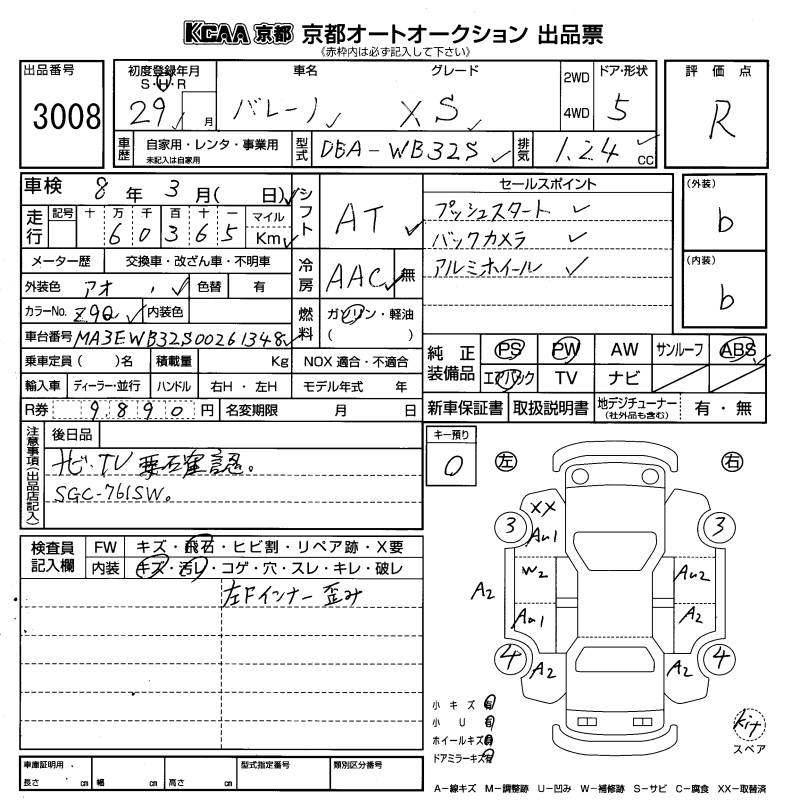 KCAA 京都 京都オートオークション 出品票
《赤枠内は必ず記入して下さい》
出品番号
3008
初度登録年月
S・H・R
29 月
車名
バレーノ
グレード
XS
2WD
4WD
ドア・形状
5
評価点
R
車歴
自家用・レンタ・事業用
未記入は自家用
型式
DBA-WB32S
排気
1.24 CC
車検 8年 3月( 日)
走行
記号 十 万 千 百 十 一
6 0 3 6 5
マイル
Km
シフト
AT
セールスポイント
プッシュスタート
バックカメラ
アルミホイール
(外装)
b
(内装)
b
メーター歴 交換車・改ざん車・不明車
冷房
AAC 無
外装色 アオ 色替 有
カラーNo. Z9Q 内装色
燃料
ガソリン・軽油
( )
車台番号 MA3EWB32S00261348
乗車定員 ( )名 積載量 Kg NOX 適合・不適合
輸入車 ディーラー・並行 ハンドル 右H・左H モデル年式 年
R券 9890円 名変期限 月 日
純正装備品
PS PW AW サンルーフ ABS
エアバック TV ナビ
新車保証書 取扱説明書 地デジチューナー(社外品も含む) 有・無
注意事項(出品店記入)
後日品
ナビ・TV 要石確認。
SGC-761SW。
キー預り
0
左 右
検査員記入欄
FW キズ・飛石・ヒビ割・リペア跡・X要
内装 キズ・汚レ・コゲ・穴・スレ・キレ・破レ
左Fインナー歪み
XX
3 AU1 3
W2 AU2
A2
AU1 A2
4 A2 A2 4
小キズ 有
小U 有
ホイールキズ 有
ドアミラーキズ 有
kit
スペア
車庫証明用 長さ cm 幅 cm 高さ cm
型式指定番号
類別区分番号
A-線キズ M-調整跡 U-凹み W-補修跡 S-サビ C-腐食 XX-取替済